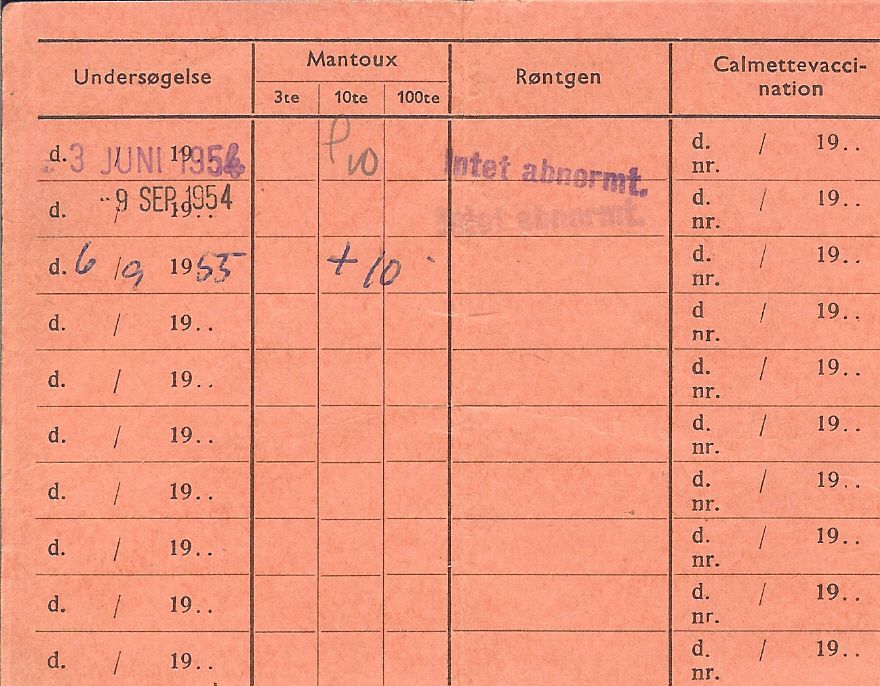 Undersøgelse Mantoux Røntgen Calmettevacci-
nation
3te 10te 100te
d. / 19.. 3 JUNI 1954 10 Intet abnormt. d. / 19..
nr.
d. / 19.. 9 SEP. 1954 Intet abnormt. d. / 19..
nr.
d. 6 / 9 1955 + 10 d. / 19..
nr.
d. / 19.. d / 19..
nr.
d. / 19.. d. / 19..
nr.
d. / 19.. d. / 19..
nr.
d. / 19.. d. / 19..
nr.
d. / 19.. d. / 19..
nr.
d. / 19.. d. / 19..
nr.
d. / 19.. d. / 19..
nr.